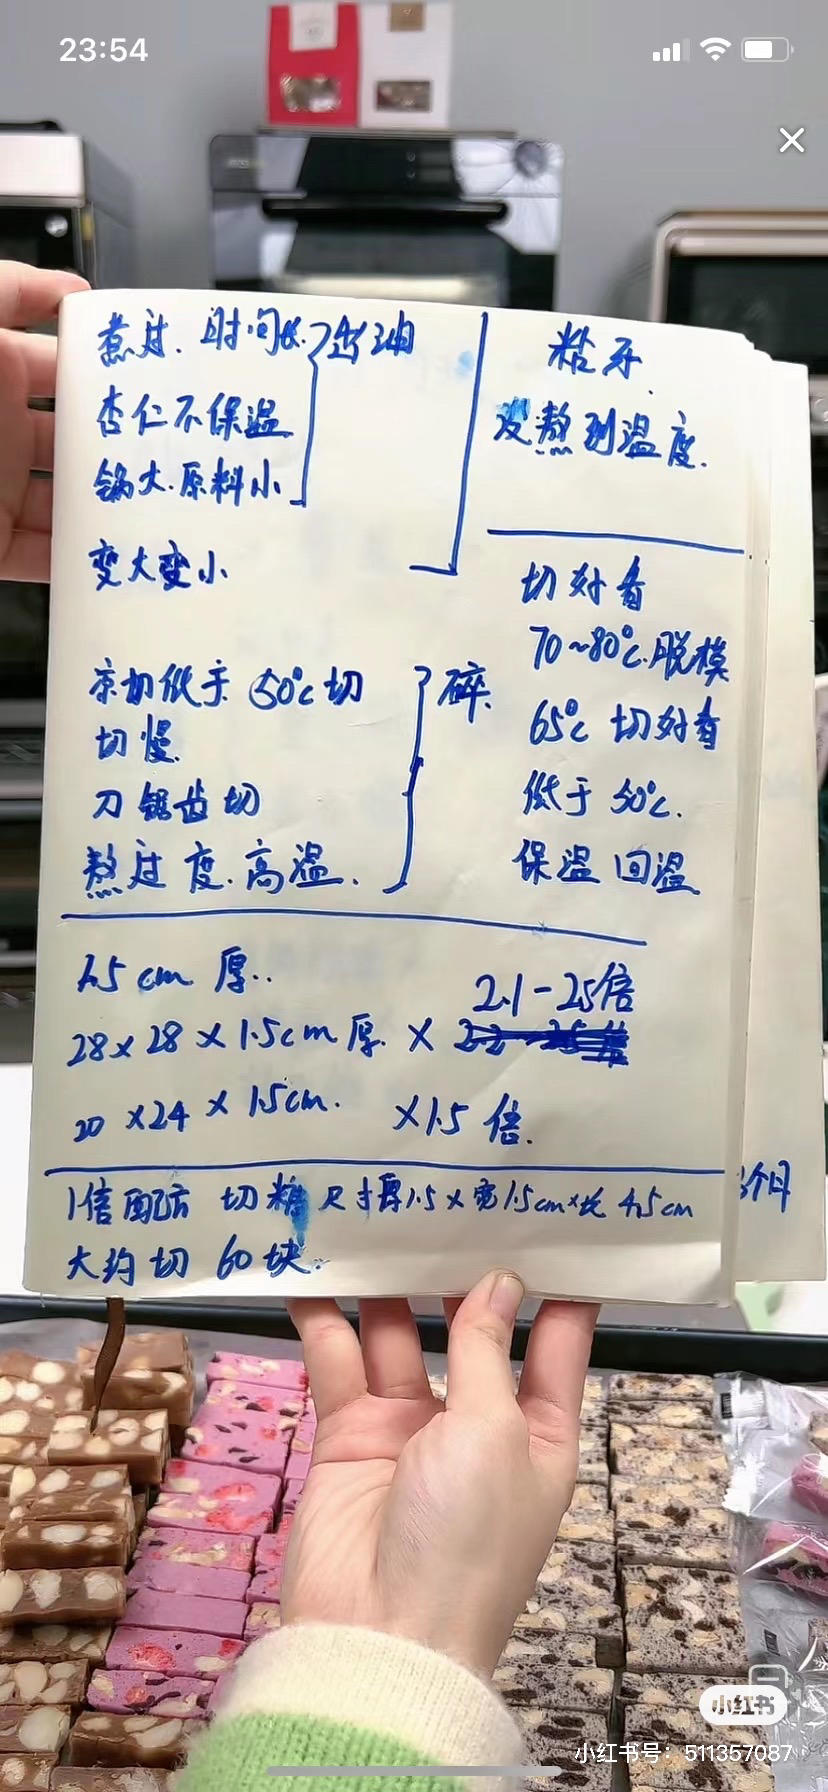 23:54
煮过.时间长.
出油
杏仁不保温
锅大.原料小
变大变小
凉切低于50℃切
切慢.
刀锯齿切
熬过度.高温.
碎.
粘牙.
没熬到温度.
切好看
70~80℃.脱模
65℃ 切好看
低于50℃.
保温回温
1.5cm 厚..
2.1-2.5倍
28×28×1.5cm厚.×
20×24×1.5cm. ×1.5倍.
1倍配方 切糖 尺寸厚1.5×宽1.5cm×长4.5cm
个月
大约切60块.
小红书
小红书号：511357087